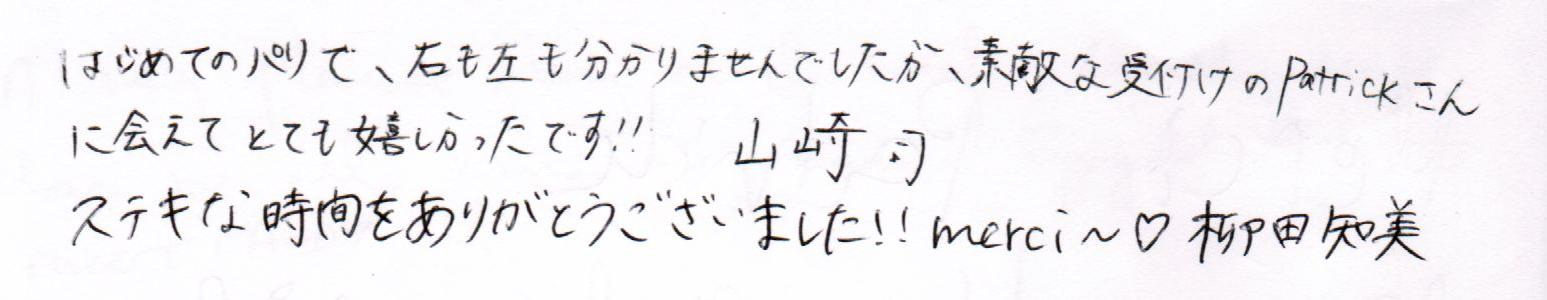 はじめてのパリで、右も左も分かりませんでしたが、素敵な受付けのPatrickさん
に会えてとても嬉しかったです!! 山崎
ステキな時間をありがとうございました!! merci～♡ 柳田知美